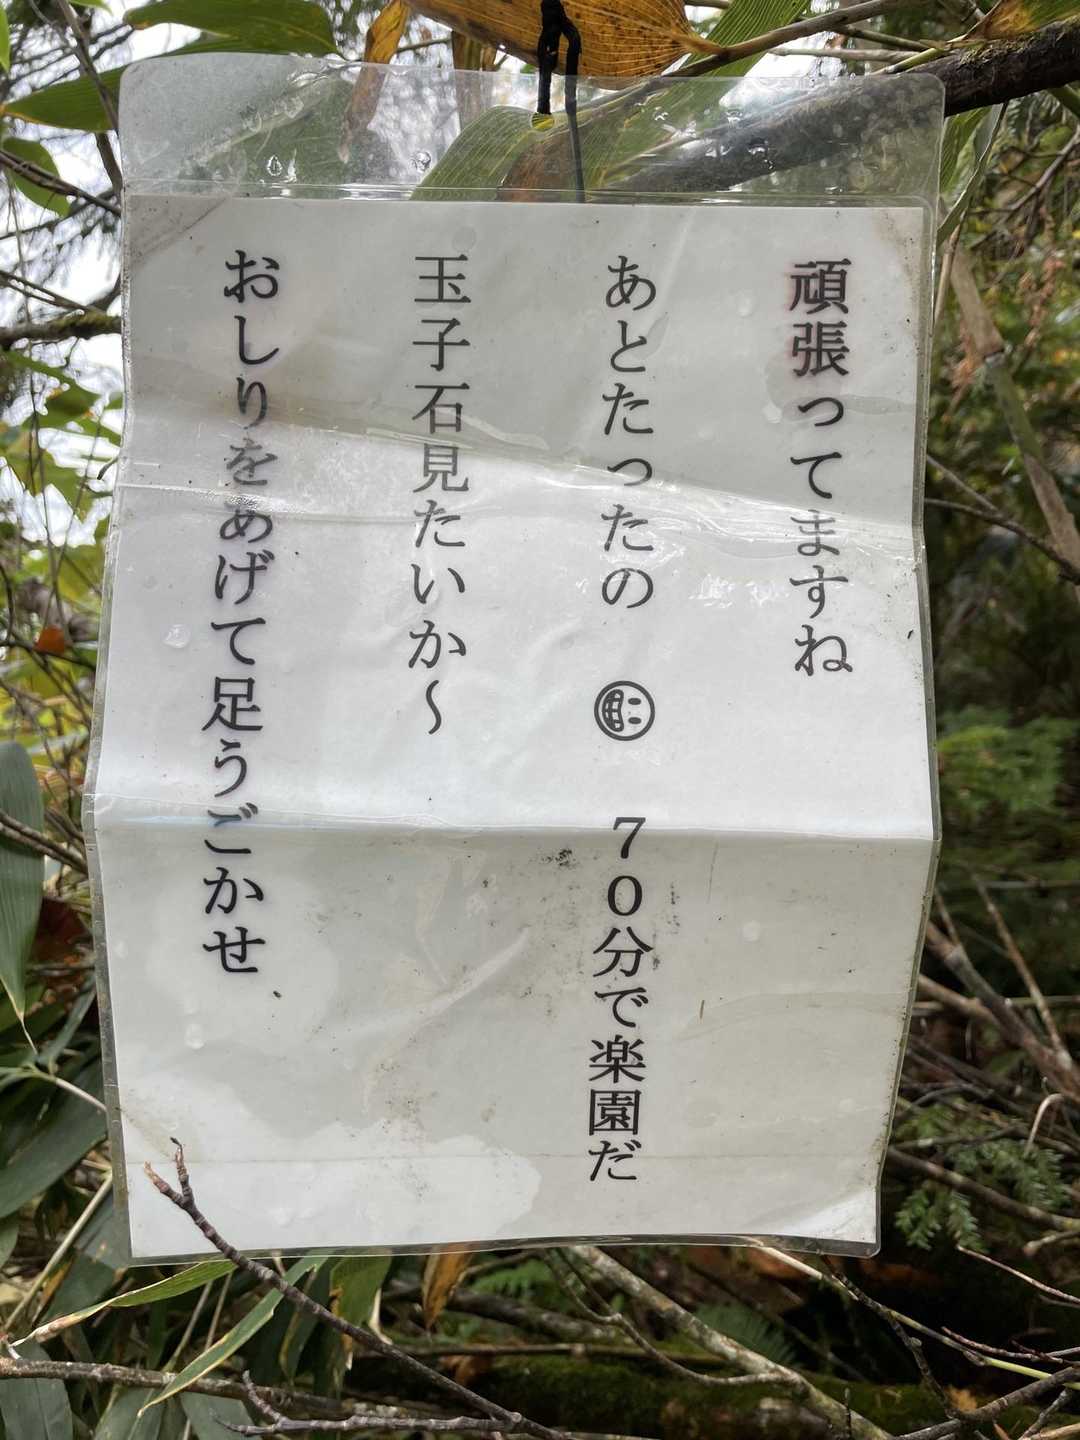 頑張ってますね
あとたったの 70分で楽園だ
玉子石見たいか～
おしりをあげて足うごかせ